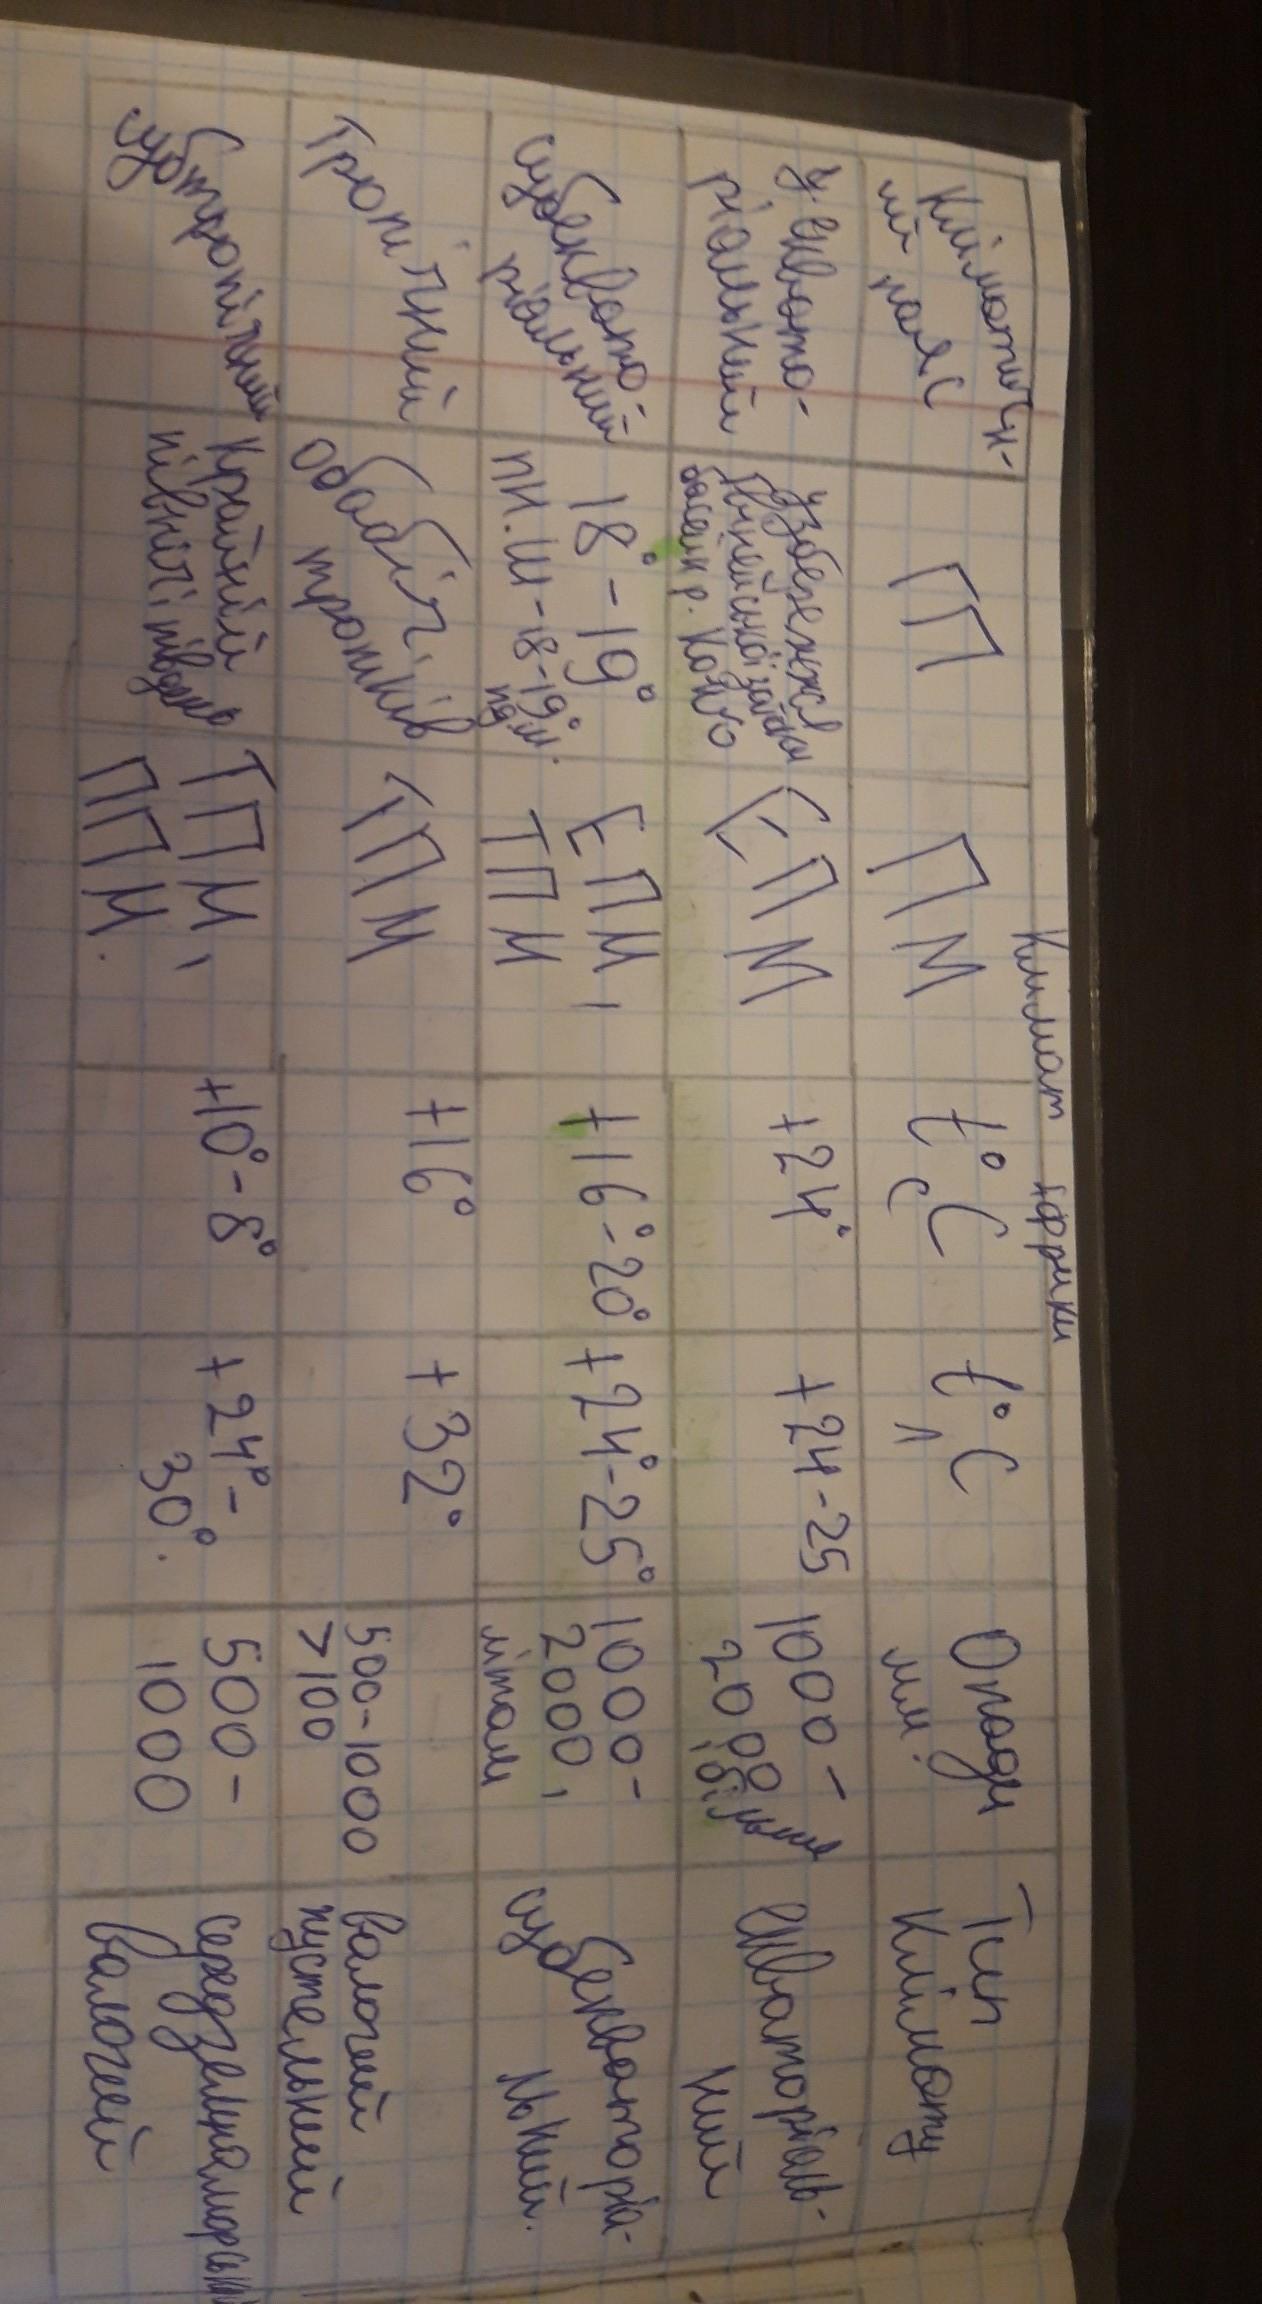 Клімат Африки
Кліматич-
ний пояс
ГП
ПМ
t°C
с
t°C
л
Опади
мм.
Тип
Клімату
у еквато-
ріальний
узбережжя
Гвінейської затоки
басейн р. Конго
ЕПМ
+24°
+24-25
1000-
2000
і більше
екваторіаль-
ний
субеквато-
ріальний
18°-19°
пн.ш-18-19°
пд.ш.
ЕПМ,
ТПМ
+16°-20°
+24°-25°
1000-
2000,
літом
субекваторіа-
льний.
Тропічний
обабіч
тропіків
ТПМ
+16°
+32°
500-1000
>100
вологий
пустельний
субтропічний
Крайній
північ і південь
ТПМ,
ППМ.
+10°-8°
+24°-
30°.
500-
1000
середземноморський
вологий